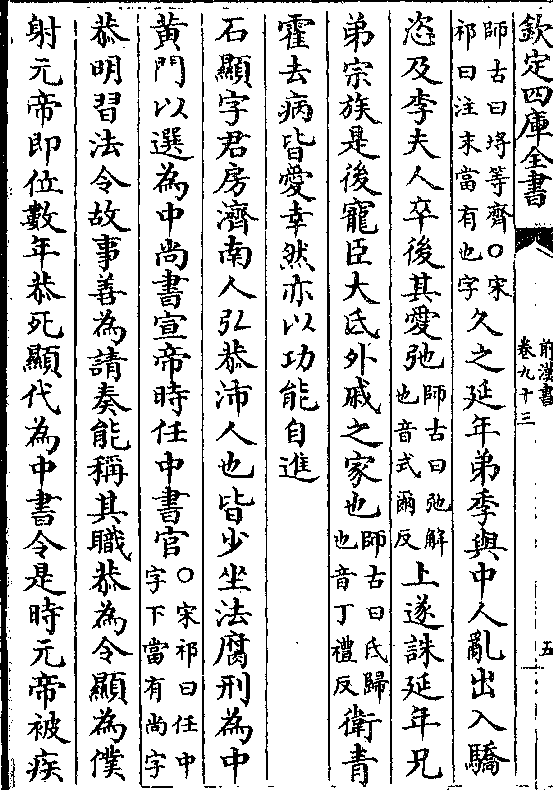 欽定四庫全書
前漢書
卷九十三
五
師古曰埒等齊○宋
祁曰注末當有也字
久之延年弟季與中人亂出入驕
恣及李夫人卒後其愛弛
師古曰弛解
也音式爾反
上遂誅延年兄
弟宗族是後寵臣大氐外戚之家也
師古曰氐歸
也音丁禮反
衛青
霍去病皆愛幸然亦以功能自進
石顯字君房濟南人弘恭沛人也皆少坐法腐刑為中
黃門以選為中尚書宣帝時任中書官
○宋祁曰任中
字下當有尚字
恭明習法令故事善為請奏能稱其職恭為令顯為僕
射元帝即位數年恭死顯代為中書令是時元帝被疾